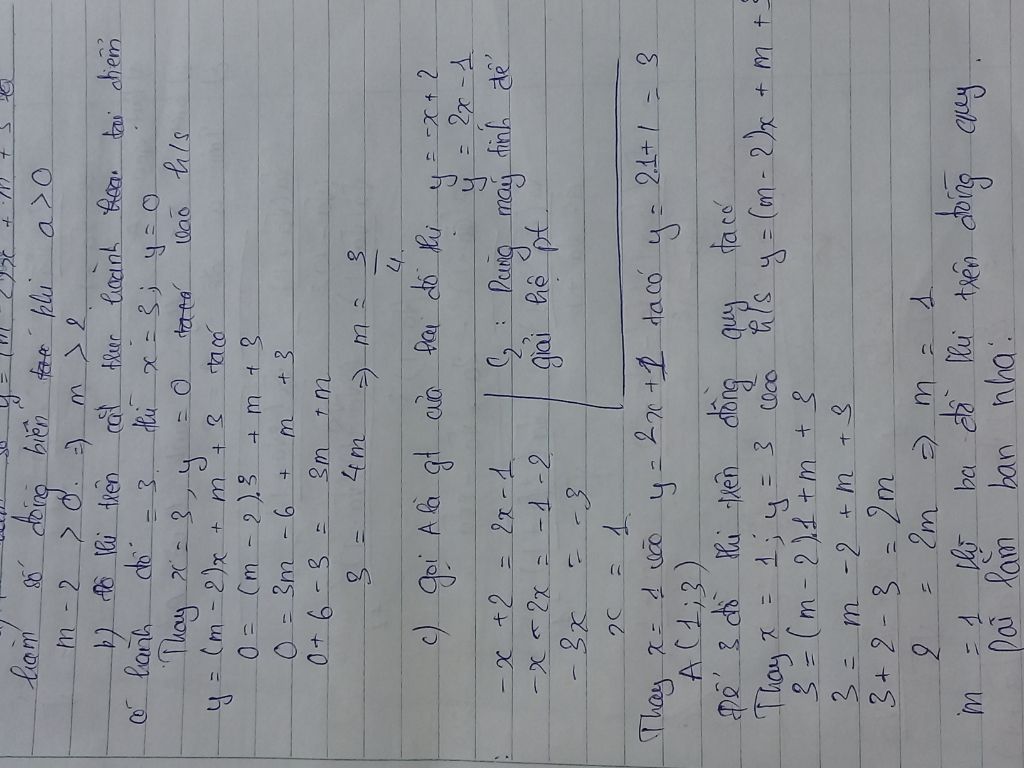 hàm số y = (m - 2)x + m + 3
hàm số đồng biến khi a > 0
m - 2 > 0 => m > 2
b) Đồ thị trên cắt trục hoành tại điểm
có hành độ = 3 thì x = 3; y = 0
Thay x = 3, y = 0 vào h/s
y = (m - 2)x + m + 3 ta có
0 = (m - 2).3 + m + 3
0 = 3m - 6 + m + 3
0 + 6 - 3 = 3m + m
3 = 4m => m = 3/4
c) gọi A là gđ của hai đồ thị y = -x + 2
y = 2x - 1
-x + 2 = 2x - 1
-x - 2x = -1 - 2
-3x = -3
x = 1
C2: Dùng máy tính để
giải hệ pt
Thay x = 1 vào y = 2x + 1 ta có y = 2.1 + 1 = 3
A (1; 3)
Để 3 đồ thị trên đồng quy ta có
Thay x = 1; y = 3 vào h/s y = (m - 2)x + m + 3
3 = (m - 2).1 + m + 3
3 = m - 2 + m + 3
3 + 2 - 3 = 2m
2 = 2m => m = 1
m = 1 thì ba đồ thị trên đồng quy.